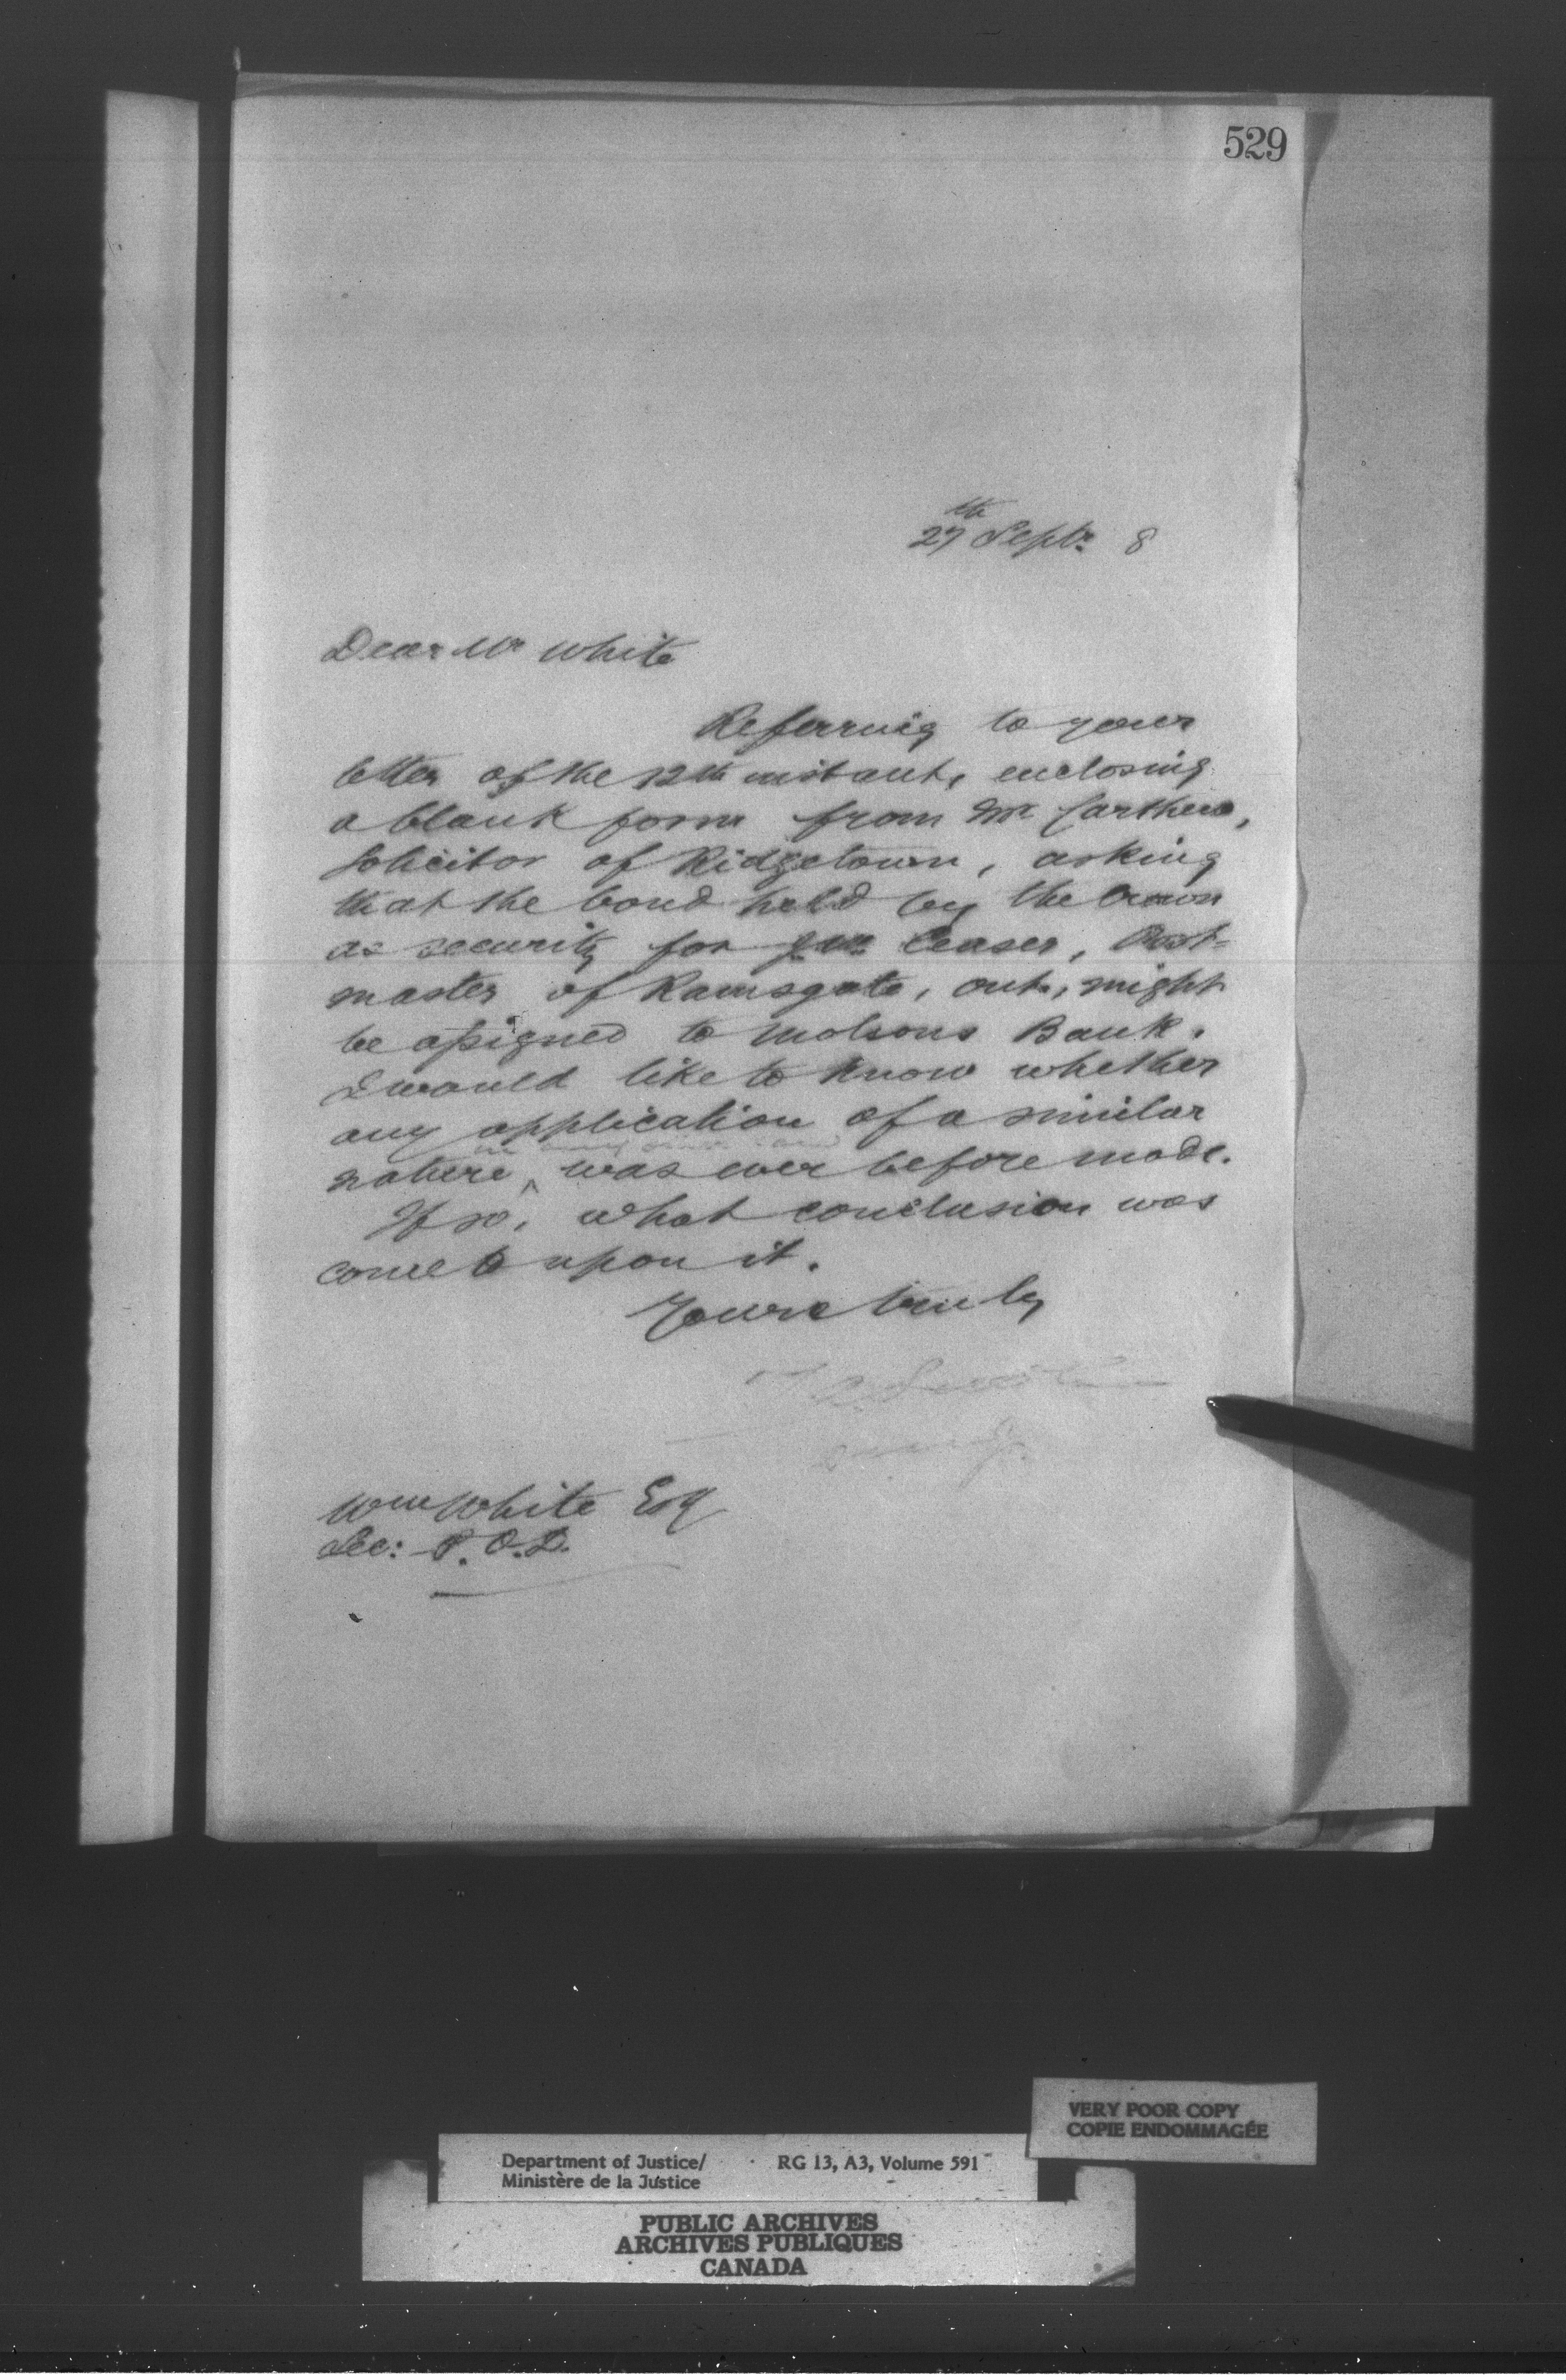 529
27th Septr 8
Dear Mr White
Referring to your
letter of the 12th instant, enclosing
a blank form from Mr
solicitor of Ridgetown, asking
that the bond held by the Crown
as security for Jno Ceaser, Post-
master of Ramsgate, Ont., might
be assigned to Molsons Bank.
I would like to know whether
any application of a similar
nature, was ever before made.
If so, what conclusion was
come to upon it.
Yours truly
Wm White Esq
Sec: P.O.D.
VERY POOR COPY
COPIE ENDOMMAGÉE
Department of Justice/ RG 13, A3, Volume 591
Ministère de la Justice
PUBLIC ARCHIVES
ARCHIVES PUBLIQUES
CANADA